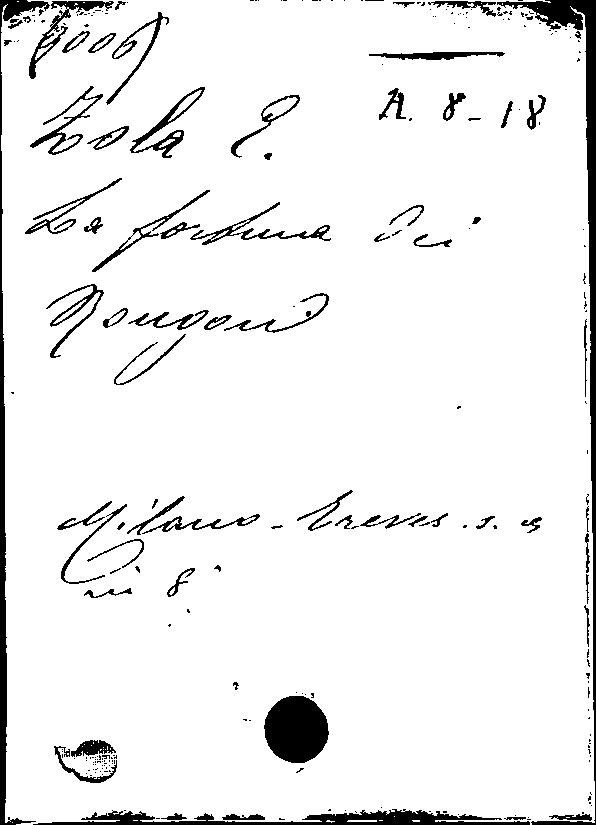 (9006)
A. 8-18
Zola E.
La fortuna dei
Rougon
Milano - Treves. s. a
in 8°